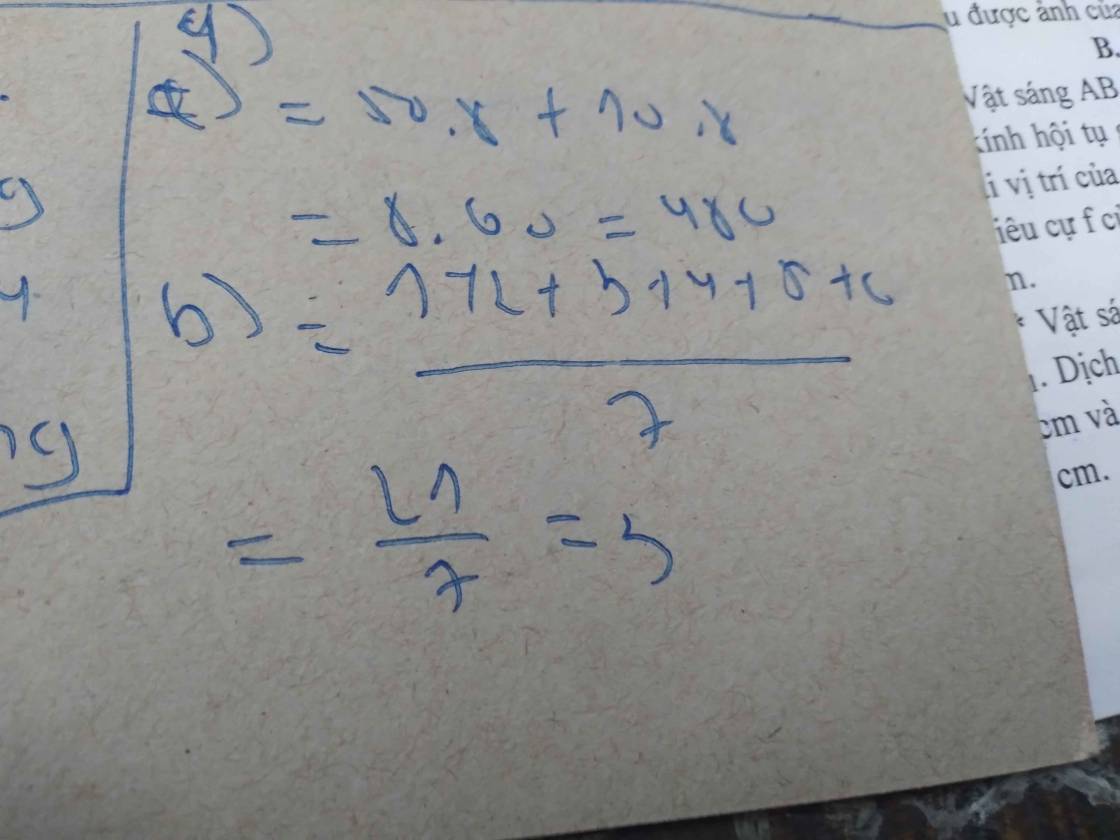 4)
a) = 50.8 + 10.8
= 8.60 = 480
b) = 1+2+3+4+5+6
7
= 21 = 3
7
g
4
ng
được ảnh của
B.
Vật sáng AB
kính hội tụ
vị trí của
tiêu cự f
m.
* Vật
. Dịch
cm và
cm.